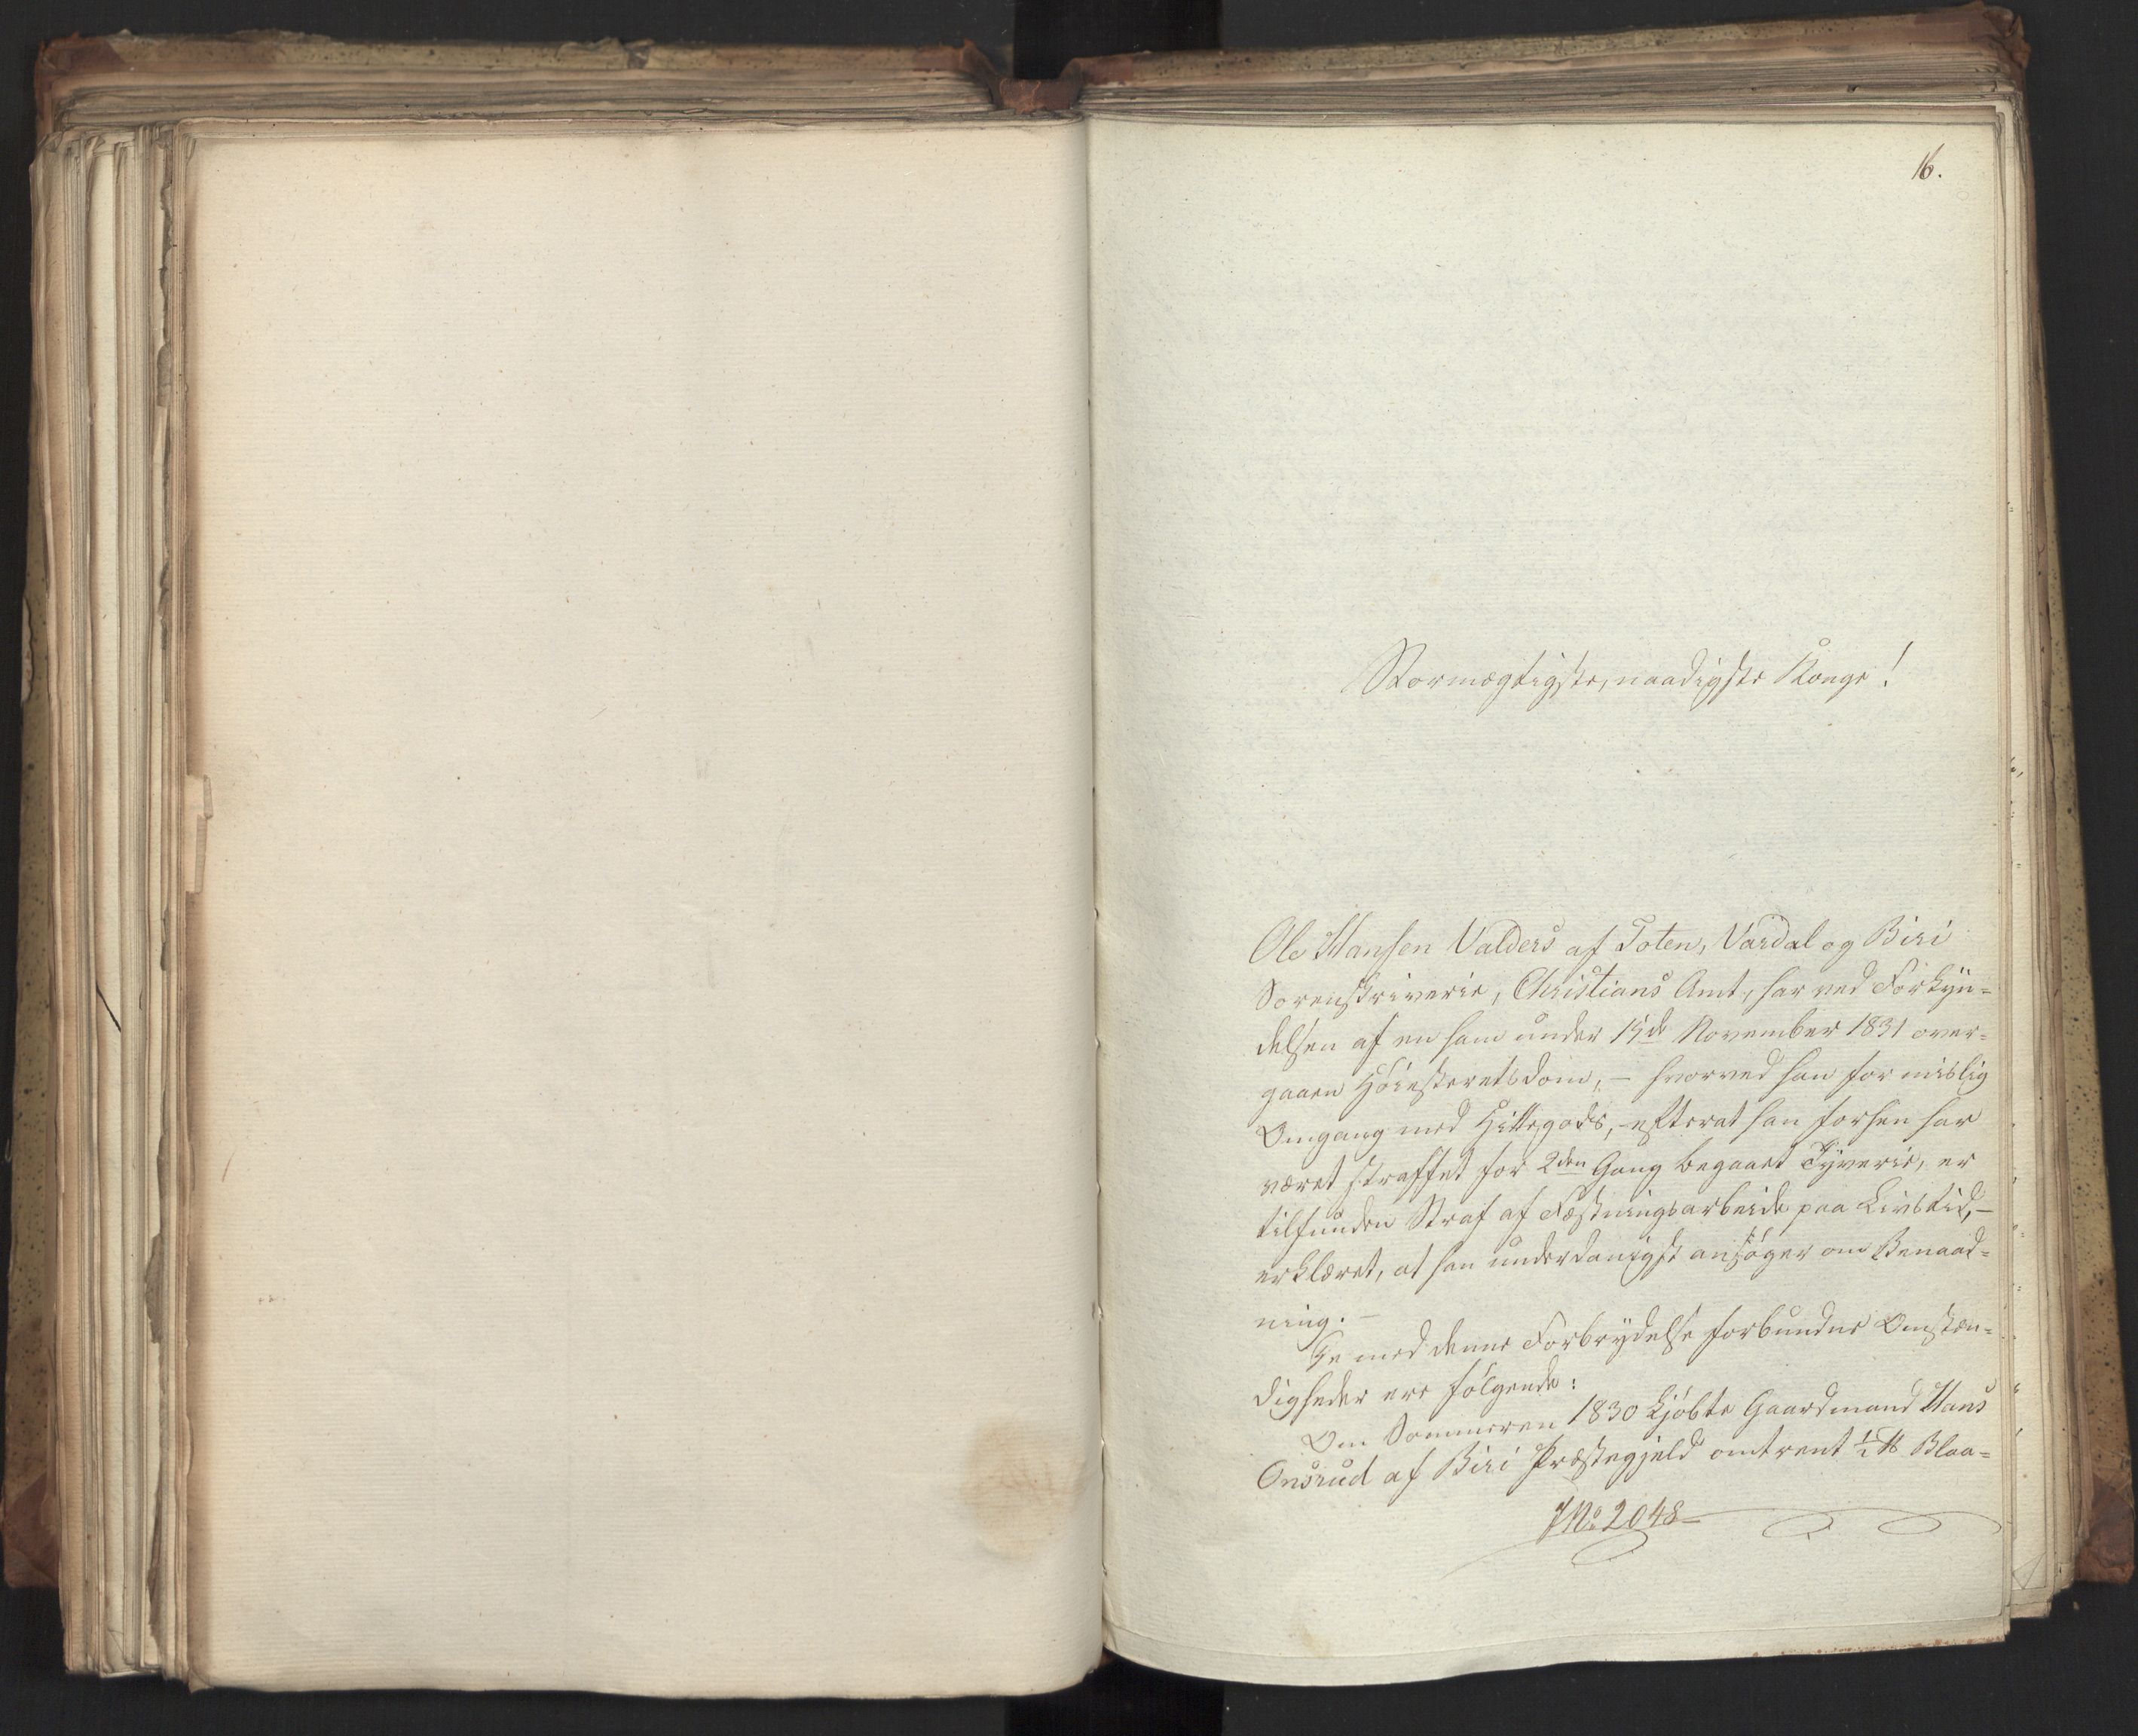 16.
Stormægtigste, naadigste Konge!
Ole Hansen Valders af Toten, Vardal og Biri
Sorenskriverie, Christians Amt, har ved Forkyn=
delsen af en ham under 15de November 1831 over=
gaaen Høiesteretsdom, – hvorved han for mislig
Omgang med Hittegods, – efterat han forhen har
været straffet for 2den Gang begaaet Tyverie, er
tilfunden Straf af Fæstningsarbeide paa Livstid, –
erklæret, at han underdanigst ansøger om Benaad=
ning. –
De med denne Forbrydelse forbundne Omstæn=
digheder ere følgende:
Om Sommeren 1830 kjøbte Gaardmand Hans
Onsrud af Biri Præstegjeld omtrent ½ ℔ Blaa=
JNo 2048